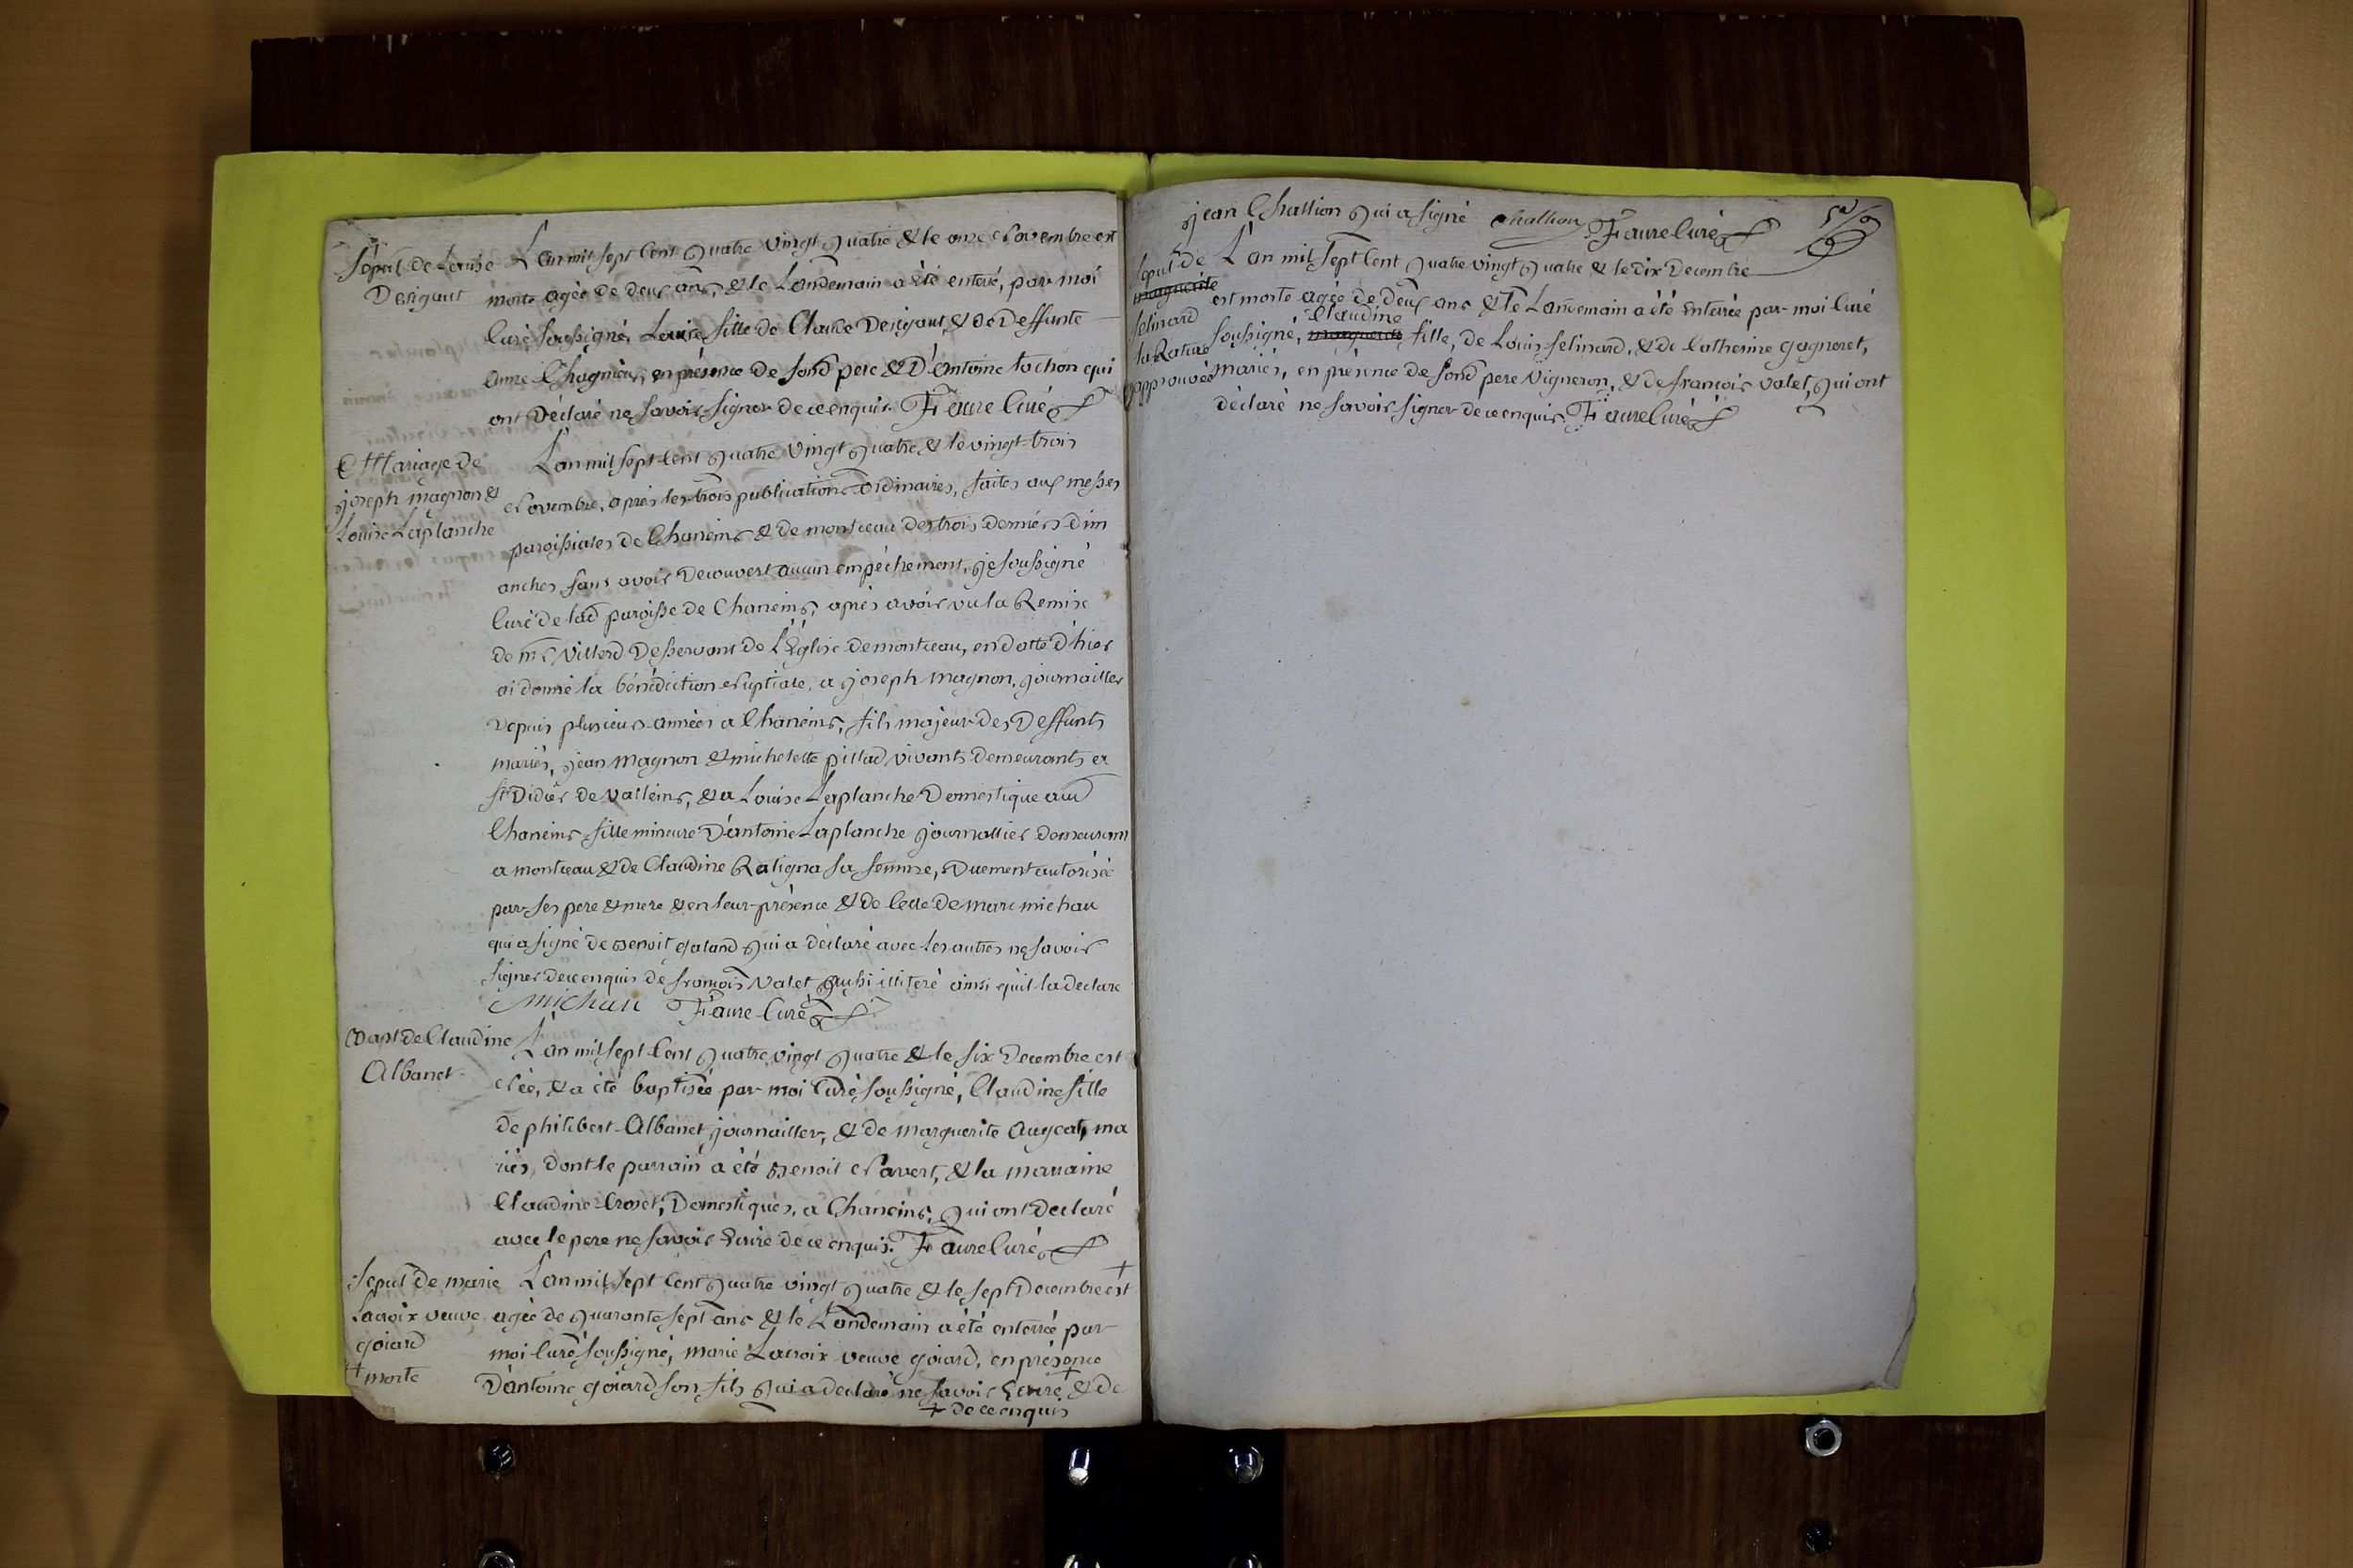 Sepul de Louise
Derigaut
L'an mil sept Cent Quatre vingt Quatre & le onze Novembre est
morte agée de deux ans, & le Landemain a été enteré, par moi
Curé soussigné, Louise fille de Claude Derigaut, & de Deffunte
anne Chagnieux, en présence de sond pere & D'antoine tachon qui
ont Déclaré ne savoir signer de ce enquis. Faure Curé
Mariage de
joseph magnon &
Louise Laplanche
L'an mil sept Cent Quatre Vingt Quatre, & le vingt-trois
Novembre, après les trois publications ordinaires, faites aux messes
paroissiales de Chaneins & de montceau des trois derniers dim
anches, sans avoir Decouvert aucun empéchement, je soussigné
Curé de lad paroisse de Chaneins, après avoir vu la Remise
de mr Villerd Desservant de L'Eglise de montceau, en datte d'hier
ai donné la bénédiction Nuptiale, a joseph magnon, journallier
Depuis plusieurs années a Chaneins, fils majeur des Deffunts
mariés, jean magnon & michelette pillad vivants demeurants a
st Didier de Valleins, & a Louise Laplanche Domestique aud
Chaneins fille mineure D'antoine Laplanche journallier demeurant
a montceau & de Claudine Raligna sa femme, Duement autorisée
par ses pere & mere & en leur présence & de Celle de marc michau
qui a signé de Benoit galand Qui a déclaré avec les autres ne savoir
signer de ce enquis de françois Valet Aussi illiteré ainsi qu'il la declaré
Michau Faure Curé
Bapt de Claudine
Albanet
L'an mil sept Cent Quatre vingt Quatre & le six Decembre est
Née, & a été baptisée par moi Curé soussigné, Claudine fille
de philibert Albanet journallier, & de marguerite Augeat, ma
riés, dont le parrain a été Benoit Navert, & la marraine
Claudine Croset, Domestiques, a Chaneins, Qui ont Declaré
avec le pere ne savoir Ecrire de ce enquis. Faure Curé
Sepul de marie
Lacroix veuve
goiard
+ morte
L'an mil sept Cent Quatre vingt Quatre & le sept Decembre est +
agée de Quarante sept ans & le Landemain a été enterrée par
moi Curé soussigné, marie Lacroix veuve goiard, en présence
D'antoine goiard son fils Qui a declaré ne savoir Ecrire + & de
+ de ce enquis
jean Challion Qui a signé Challion Faure Curé
Sepul de
marguerite
felinard
la Rature
approuvée
L'an mil sept Cent Quatre vingt Quatre & le dix Decembre
est morte agée de deux ans & le Landemain a été Enterrée par moi Curé
Claudine
soussigné, marguerite fille, de Louis felinard, & de Catherine gagneret,
mariés, en présence de sond pere Vigneron, & de françois valet, Qui ont
déclaré ne savoir signer de ce enquis. Faure Curé